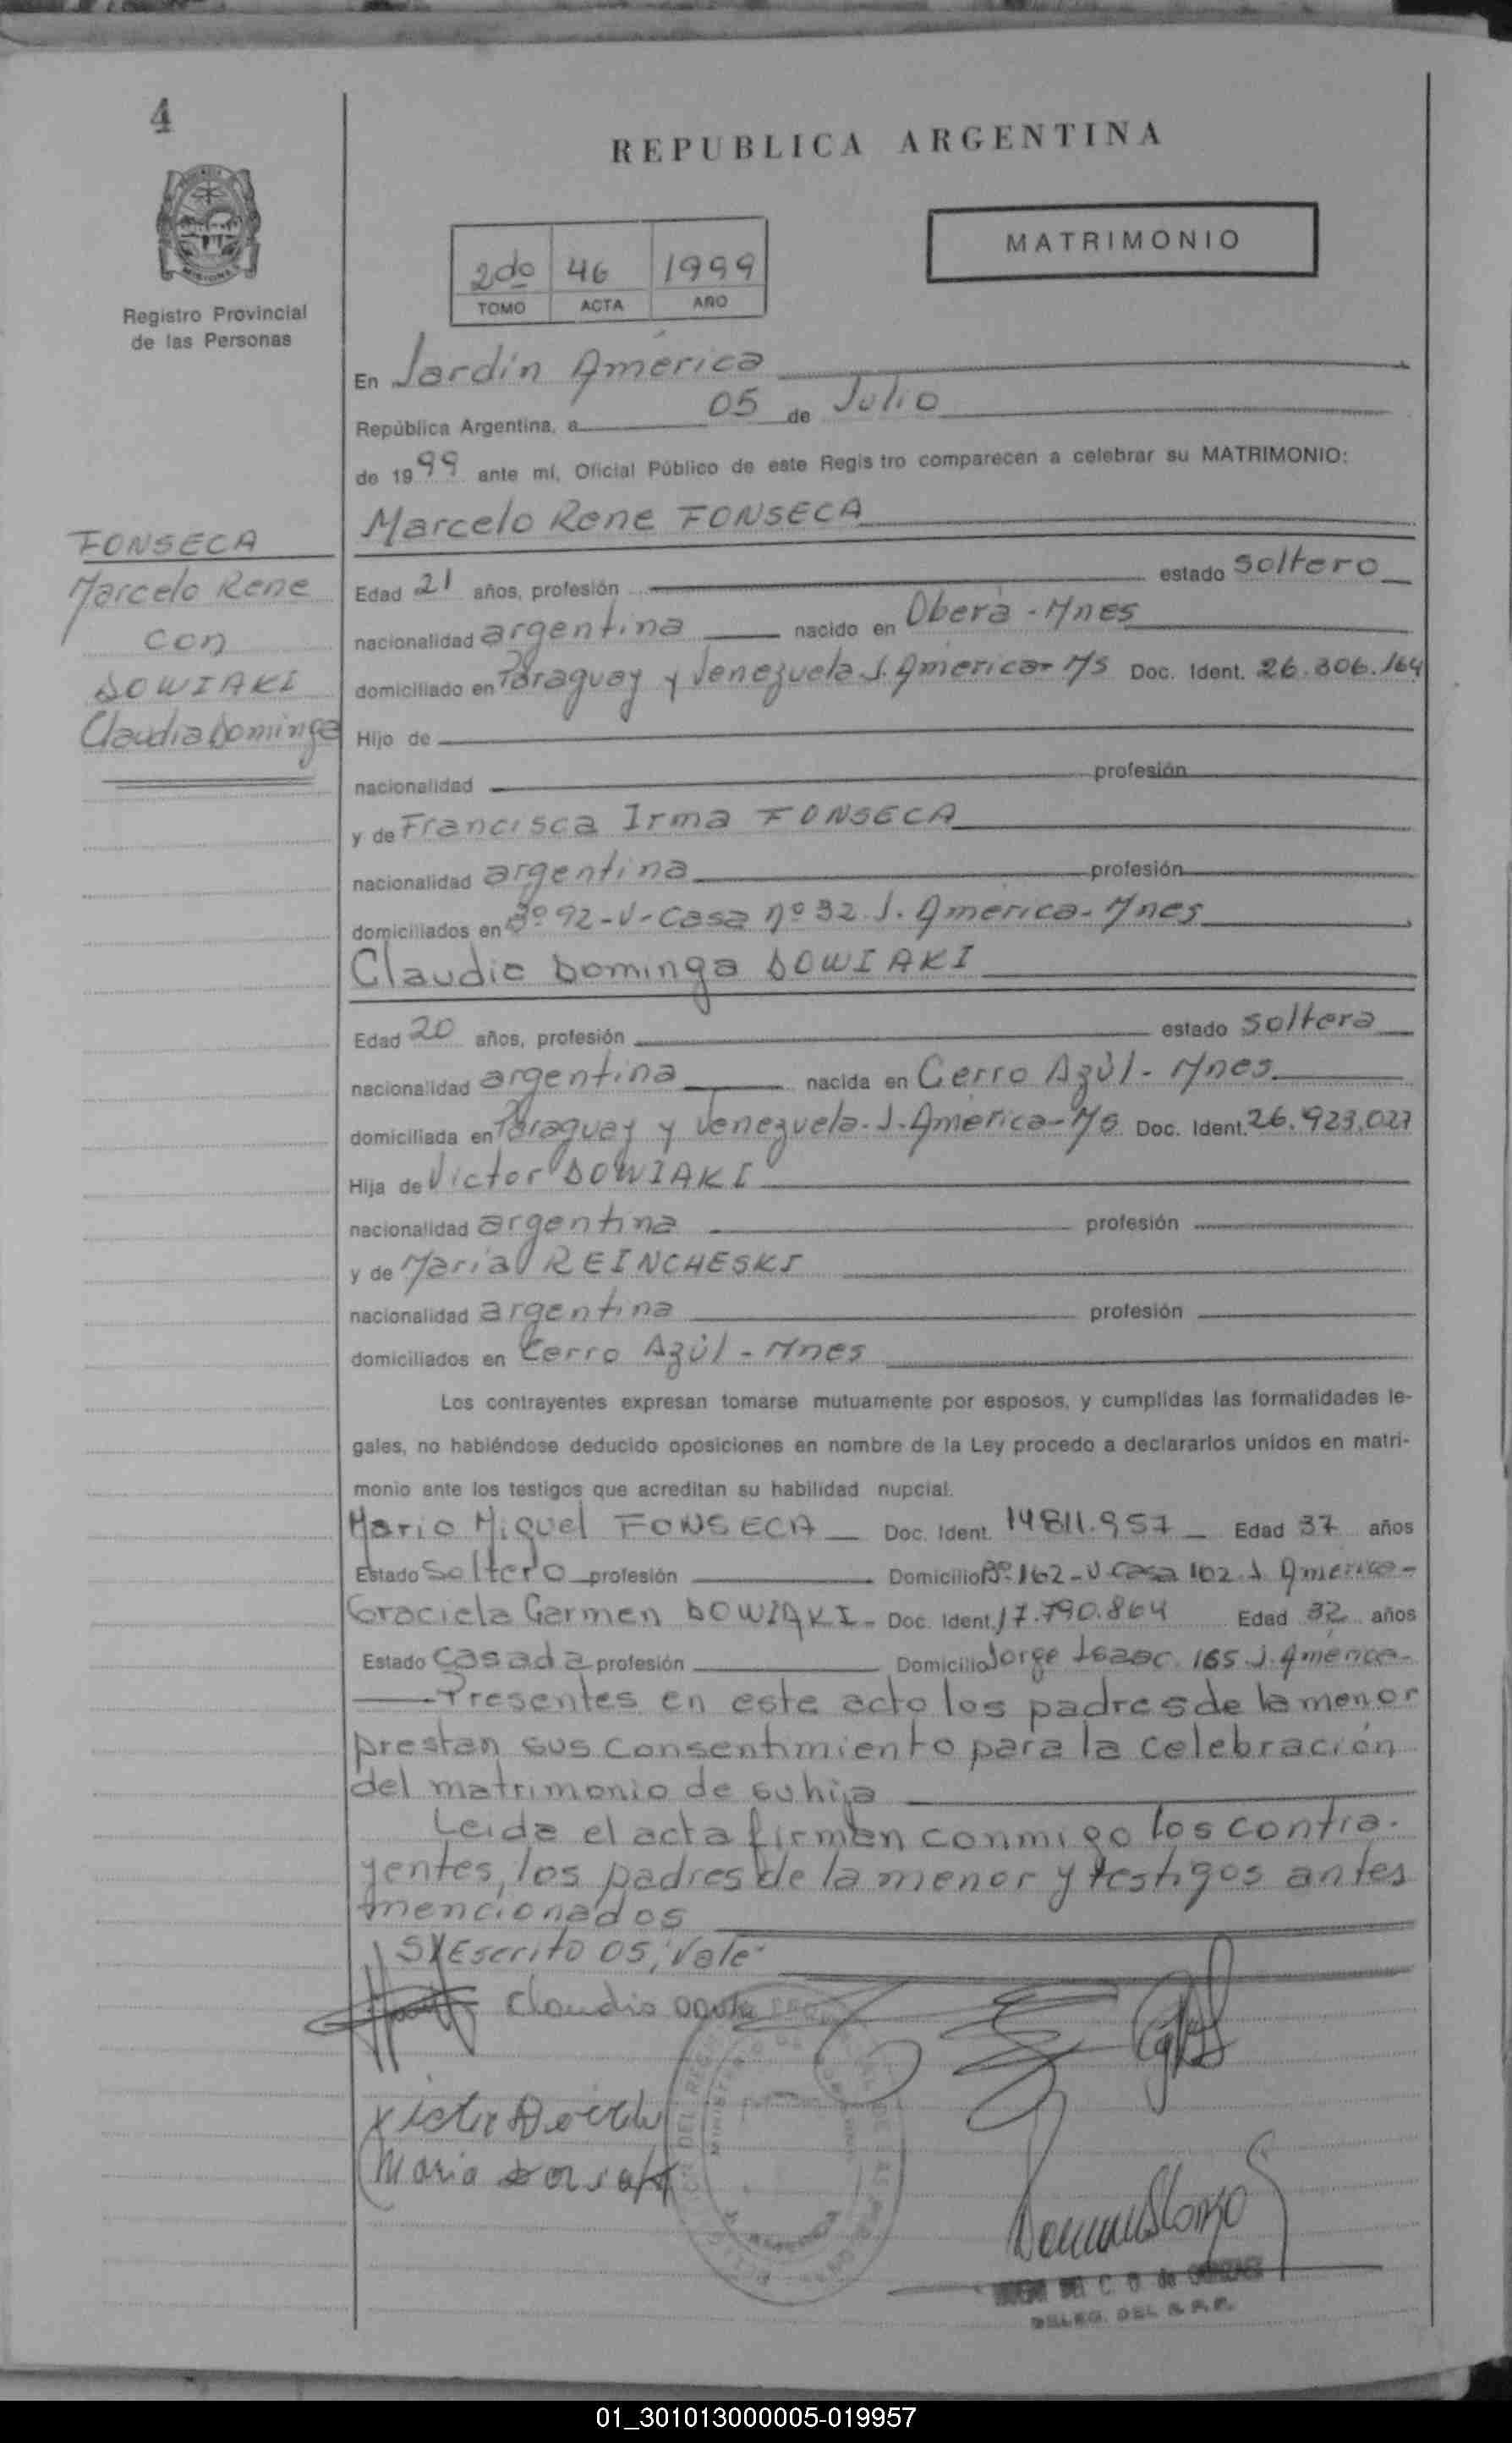 4
REPUBLICA ARGENTINA
MATRIMONIO
2do 46 1999
TOMO ACTA AÑO
Registro Provincial
de las Personas
En Jardín América
República Argentina, a 05 de Julio
de 1999 ante mí, Oficial Público de este Registro comparecen a celebrar su MATRIMONIO:
Marcelo Rene FONSECA
FONSECA
Marcelo Rene
con
DOWIAKI
Claudia Dominga
Edad 21 años, profesión estado Soltero
nacionalidad argentina nacido en Oberá - Mnes
domiciliado en Paraguay y Venezuela J. América - Ms Doc. Ident. 26.306.164
Hijo de
nacionalidad profesión
y de Francisca Irma FONSECA
nacionalidad argentina profesión
domiciliados en Bº 92-V- Casa nº 32 J. América - Mnes
Claudia Dominga DOWIAKI
Edad 20 años, profesión estado soltera
nacionalidad argentina nacida en Cerro Azúl - Mnes
domiciliada en Paraguay y Venezuela - J. América - Ms Doc. Ident. 26.923.027
Hija de Victor DOWIAKI
nacionalidad argentina profesión
y de María REINCHESKI
nacionalidad argentina profesión
domiciliados en Cerro Azúl - Mnes
Los contrayentes expresan tomarse mutuamente por esposos, y cumplidas las formalidades le-
gales, no habiéndose deducido oposiciones en nombre de la Ley procedo a declararlos unidos en matri-
monio ante los testigos que acreditan su habilidad nupcial.
Mario Miguel FONSECA Doc. Ident. 14811.957 Edad 37 años
Estado Soltero profesión Domicilio Bº 162-V Casa 102 J. América -
Graciela Carmen DOWIAKI - Doc. Ident. 17.790.864 Edad 32 años
Estado Casada profesión Domicilio Jorge Isaac 165 J. América -
Presentes en este acto los padres de la menor
prestan sus consentimiento para la celebración
del matrimonio de su hija
Leída el acta firman conmigo los contra-
yentes, los padres de la menor y testigos antes
mencionados
S/Escrito 05, Vale
Claudia
Maria
DELEG. DEL R.P.P.
01_301013000005-019957